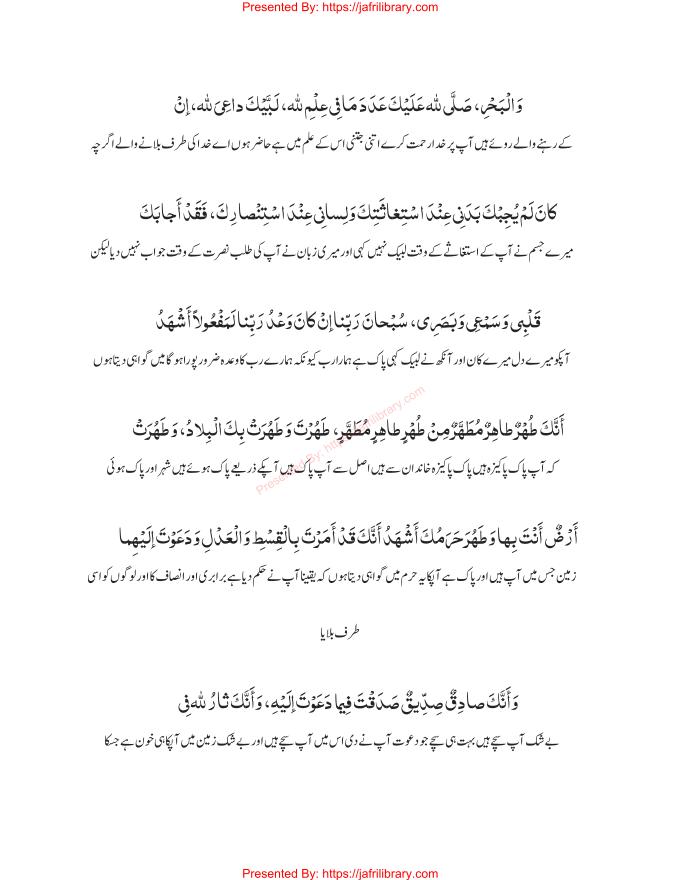 Presented By: https://jafrilibrary.com
وَالْبَحْرِ، صَلَّى لله عَلَيْكَ عَدَدَ مَا فِي عِلْمِ لله، لَبَّيْكَ داعِيَ لله، إنْ
کے رہنے والے روئے ہیں آپ پر خدا رحمت کرے اتنی جتنی اس کے علم میں ہے حاضر ہوں اے خدا کی طرف بلانے والے اگرچہ
كانَ لَمْ يُجِبْكَ بَدَنِي عِنْدَ اسْتِغاثَتِكَ وَلِسانِي عِنْدَ اسْتِنْصارِكَ، فَقَدْ أَجابَكَ
میرے جسم نے آپ کے استغاثے کے وقت لبیک نہیں کہی اور میری زبان نے آپ کی طلب نصرت کے وقت جواب نہیں دیا لیکن
قَلْبِي وَسَمْعِي وَبَصَرِي، سُبْحانَ رَبِّنا إنْ كانَ وَعْدُ رَبِّنا لَمَفْعُولاً أَشْهَدُ
آپکو میرے دل میرے کان اور آنکھ نے لبیک کہی پاک ہے ہمارا رب کیونکہ ہمارے رب کا وعدہ ضرور پورا ہوگا میں گواہی دیتا ہوں
أَنَّكَ طُهْرٌ طاهِرٌ مُطَهَّرٌ مِنْ طُهْرٍ طاهِرٍ مُطَهَّرٍ، طَهُرْتَ وَطَهُرَتْ بِكَ الْبِلادُ، وَطَهُرَتْ
کہ آپ پاک پاکیزہ ہیں پاک پاکیزہ خاندان سے ہیں اصل سے آپ پاک ہیں آپکے ذریعے پاک ہوئے ہیں شہر اور پاک ہوئی
Presented By: https://jafrilibrary.com
أَرْضٌ أَنْتَ بِها وَطَهُرَ حَرَمُكَ أَشْهَدُ أَنَّكَ قَدْ أَمَرْتَ بِالْقِسْطِ وَالْعَدْلِ وَدَعَوْتَ إلَيْهِما
زمین جس میں آپ ہیں اور پاک ہے آپکا یہ حرم میں گواہی دیتا ہوں کہ یقینا آپ نے حکم دیا ہے برابری اور انصاف کا اور لوگوں کو اسی
طرف بلایا
وَأَنَّكَ صادِقٌ صِدِّيقٌ صَدَقْتَ فِيما دَعَوْتَ إلَيْهِ، وَأَنَّكَ ثارُ لله فِي
بے شک آپ سچے ہیں بہت ہی سچے جو دعوت آپ نے دی اس میں آپ سچے ہیں اور بے شک زمین میں آپکا ہی خون ہے جسکا
Presented By: https://jafrilibrary.com